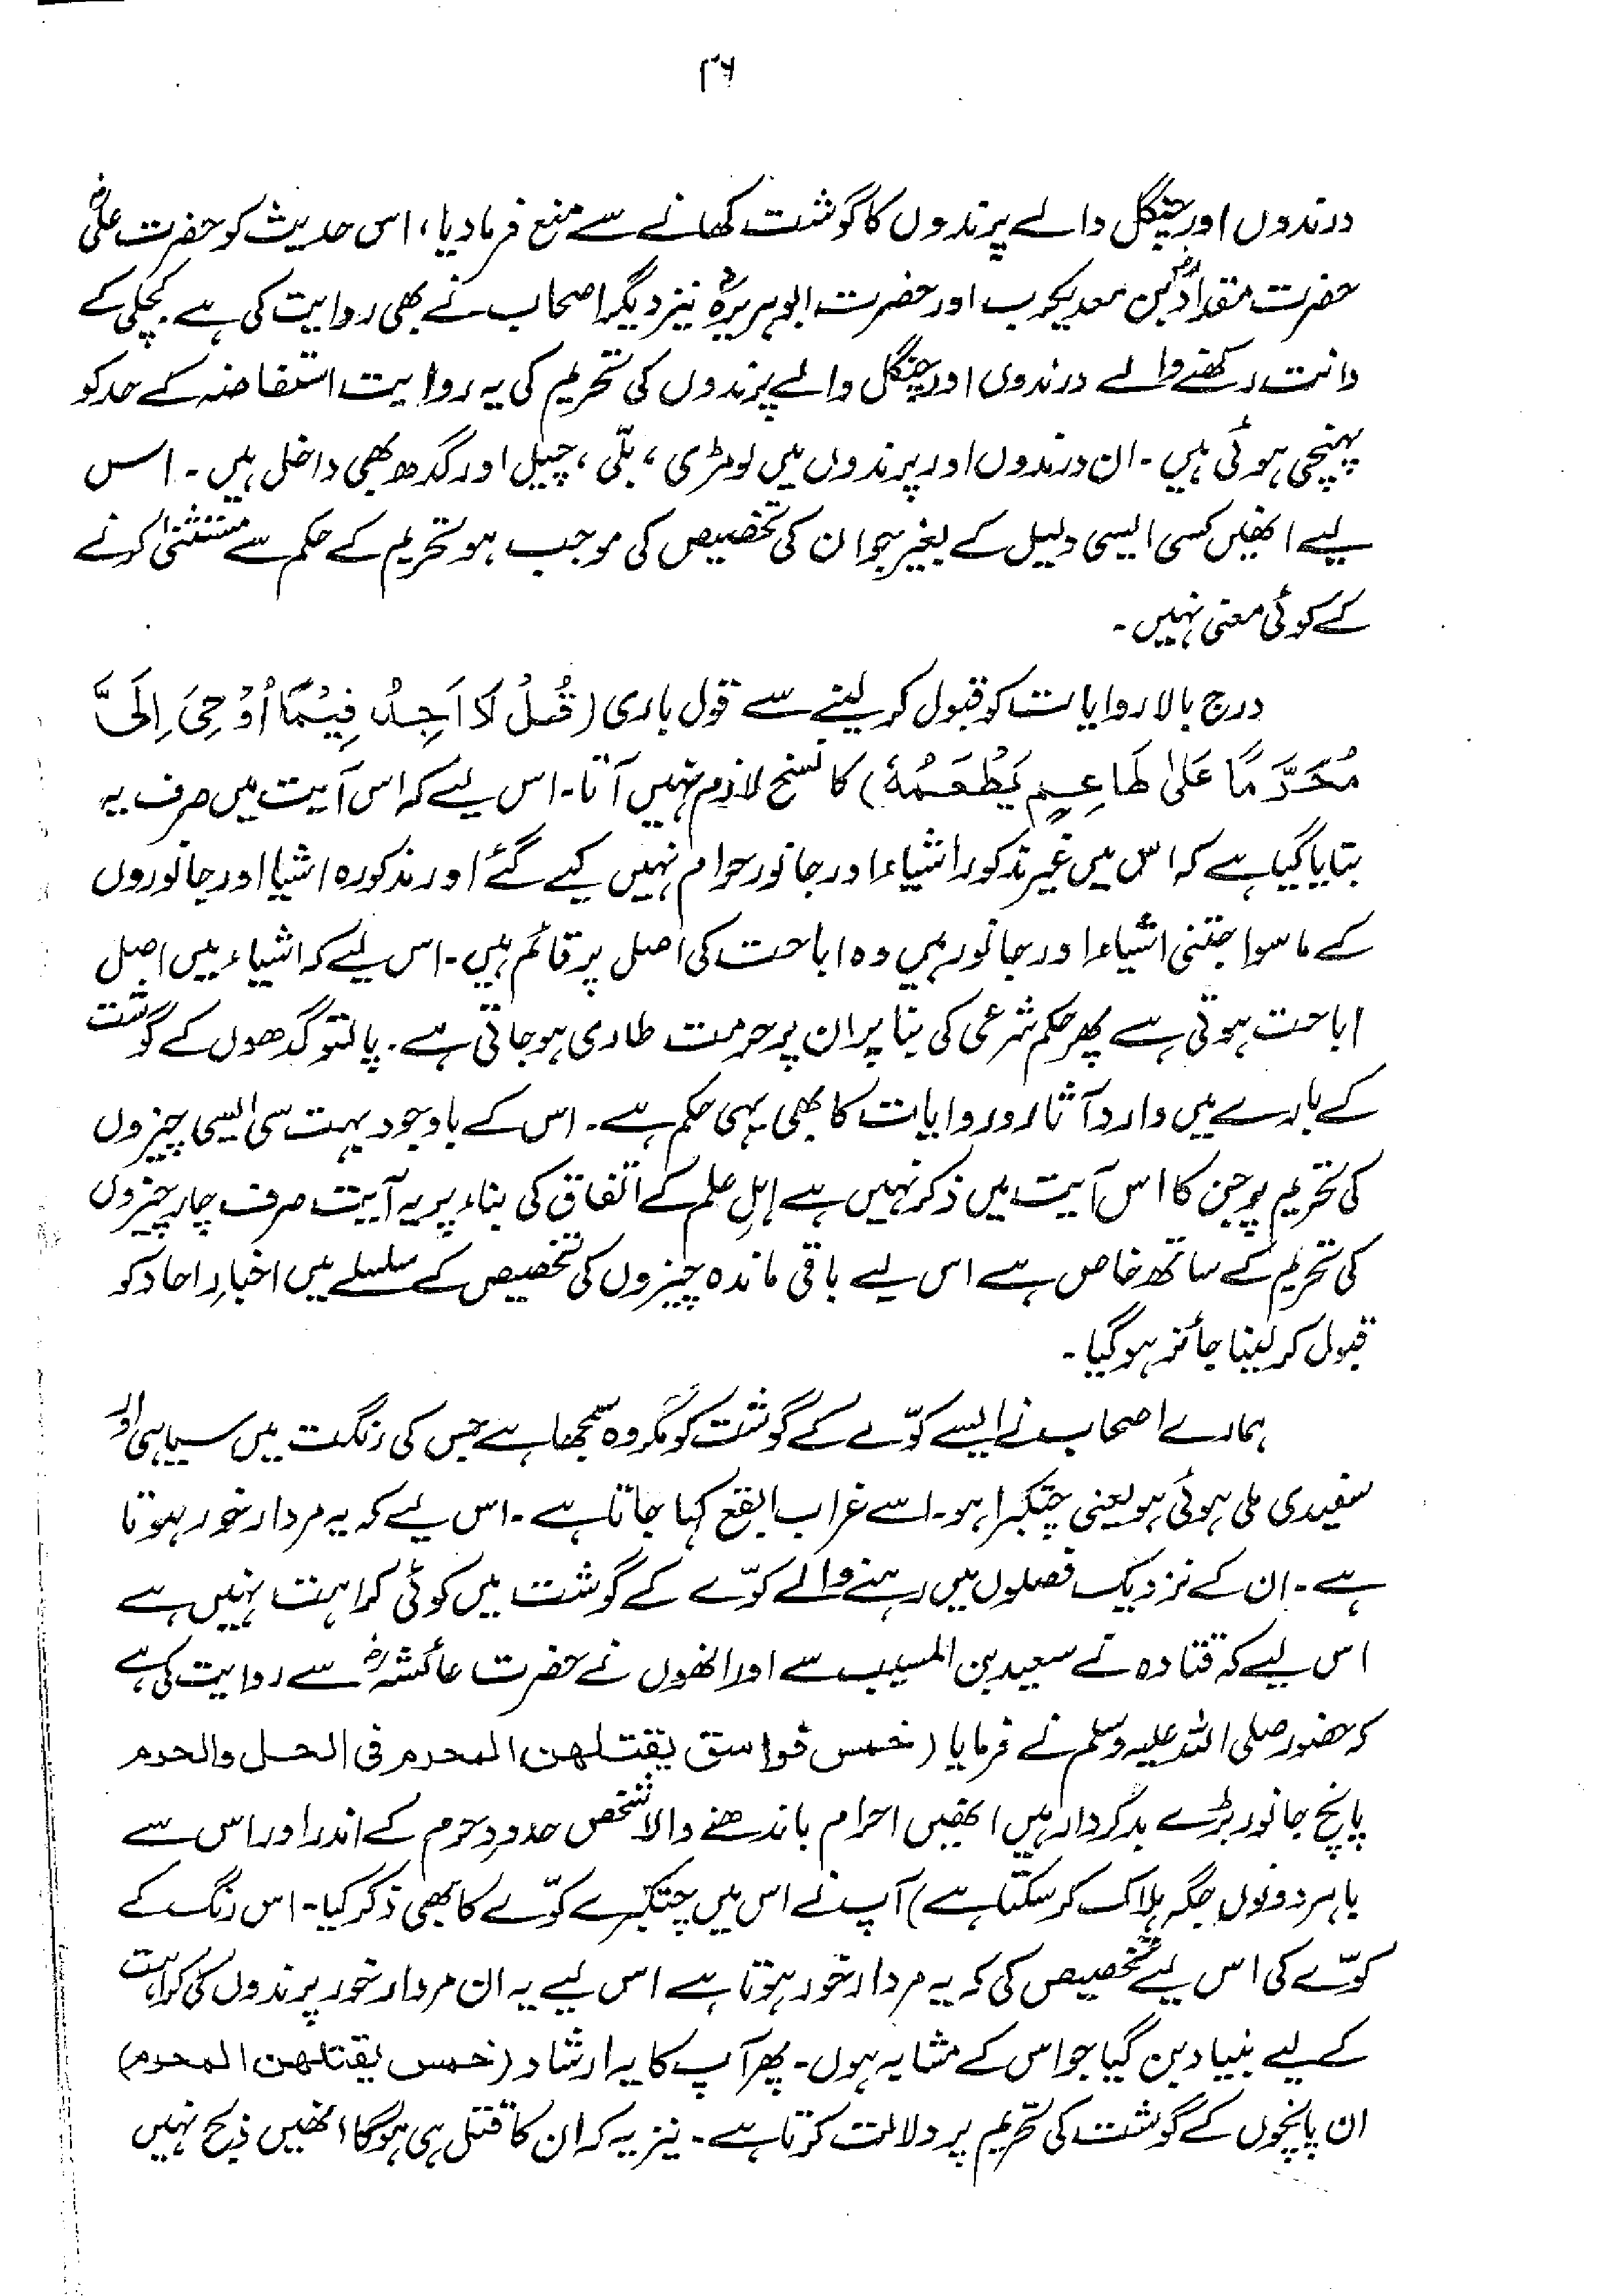 ۳۶
درندوں اور چنگل والے پرندوں کا گوشت کھانے سے منع فرما دیا، اس حدیث کو حضرت علیؓ
حضرت مقدادؓ بن معدیکرب اور حضرت ابوہریرہؓ نیز دیگر اصحاب نے بھی روایت کی ہے۔ کچلی کے
دانت رکھنے والے درندوں اور چنگل والے پرندوں کی تحریم کی یہ روایت استفاضہ کے حد کو
پہنچی ہوئی ہیں۔ ان درندوں اور پرندوں میں لومڑی، بلّی، چیل اور گدھ بھی داخل ہیں۔ اس
لیے انھیں کسی ایسی دلیل کے بغیر جو ان کی تخصیص کی موجب ہو تحریم کے حکم سے مستثنیٰ کرنے
کے کوئی معنی نہیں۔
درج بالا روایات کو قبول کر لینے سے قول باری (قُلْ لَا اَجِدُ فِيْمَا اُوْحِيَ اِلَيَّ
مُحَرَّمًا عَلٰى طَاعِمٍ يَطْعَمُهٗ) کا نسخ لازم نہیں آتا۔ اس لیے کہ اس آیت میں صرف یہ
بتایا گیا ہے کہ اس میں غیر مذکور اشیاء اور جانور حرام نہیں کیے گئے اور مذکورہ اشیا اور جانوروں
کے ماسوا جتنی اشیاء اور جانور ہیں وہ اباحت کی اصل پر قائم ہیں۔ اس لیے کہ اشیاء میں اصل
اباحت ہوتی ہے پھر حکم شرعی کی بنا پر ان پر حرمت طاری ہو جاتی ہے۔ پالتو گدھوں کے گوشت
کے بارے میں وارد آثار و روایات کا بھی یہی حکم ہے۔ اس کے باوجود بہت سی ایسی چیزوں
کی تحریم پر جن کا اس آیت میں ذکر نہیں ہے اہلِ علم کے اتفاق کی بناء پر یہ آیت صرف چار چیزوں
کی تحریم کے ساتھ خاص ہے اس لیے باقی ماندہ چیزوں کی تخصیص کے سلسلے میں اخبارِ احاد کو
قبول کر لینا جائز ہو گیا۔
ہمارے اصحاب نے ایسے کوّے کے گوشت کو مکروہ سمجھا ہے جس کی رنگت میں سیاہی اور
سفیدی ملی ہوئی ہو یعنی چتکبرا ہو۔ اسے غراب ابقع کہا جاتا ہے۔ اس لیے کہ یہ مردار خور ہوتا
ہے۔ ان کے نزدیک فصلوں میں رہنے والے کوّے کے گوشت میں کوئی کراہت نہیں ہے
اس لیے کہ قتادہ نے سعید بن المسیب سے اور انھوں نے حضرت عائشہؓ سے روایت کی ہے
کہ حضور صلی اللہ علیہ وسلم نے فرمایا (خمس فواسق يقتلهن المحرم فى الحل والحرم
پانچ جانور بڑے بدکردار ہیں انھیں احرام باندھنے والا شخص حدودِ حرم کے اندر اور اس سے
باہر دونوں جگہ ہلاک کر سکتا ہے) آپ نے اس میں چتکبرے کوّے کا بھی ذکر کیا۔ اس رنگ کے
کوّے کی اس لیے تخصیص کی کہ یہ مردار خور ہوتا ہے اس لیے یہ ان مردار خور پرندوں کی کراہت
کے لیے بنیاد بن گیا جو اس کے مشابہ ہوں۔ پھر آپ کا یہ ارشاد (خمس يقتلهن المحرم)
ان پانچوں کے گوشت کی تحریم پر دلالت کرتا ہے۔ نیز یہ کہ ان کا قتل ہی ہوگا انھیں ذبح نہیں